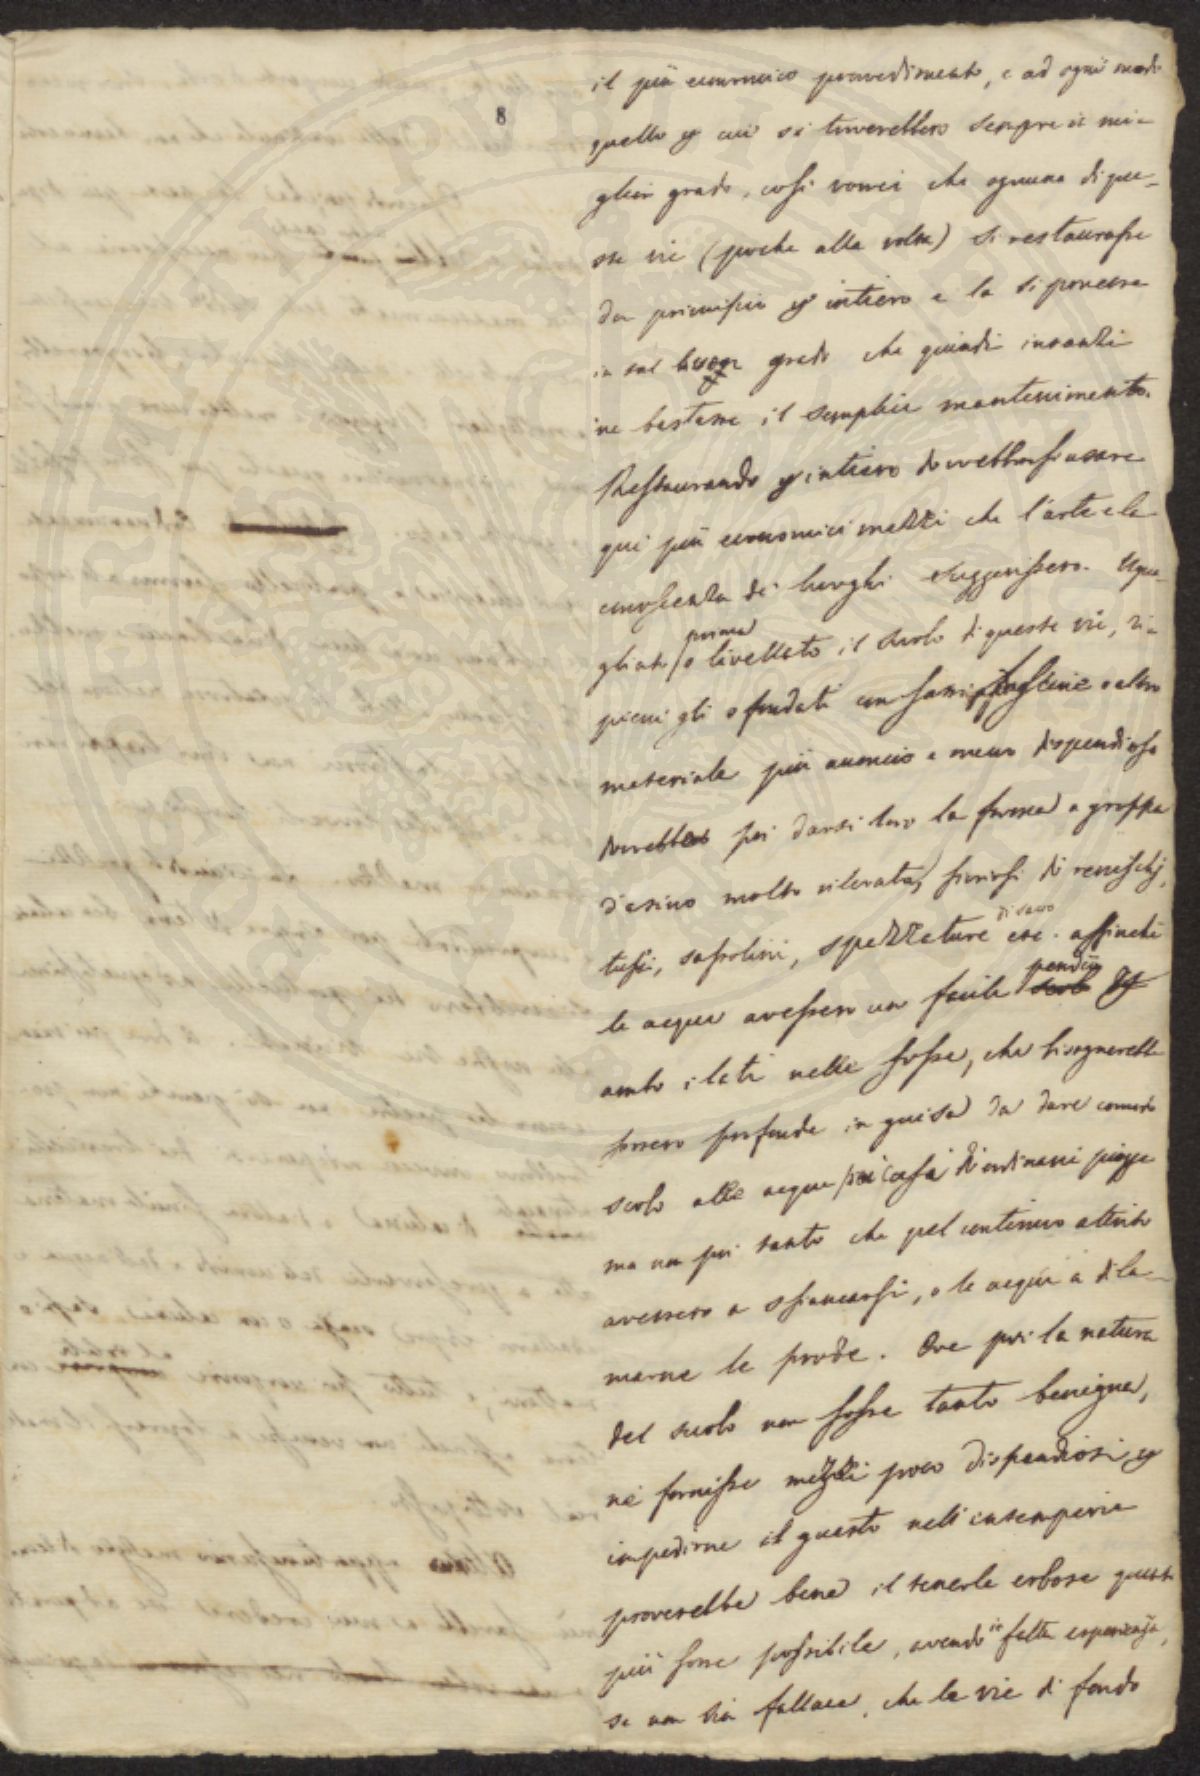 8
il più economico provvedimento, e ad ogni modo
quello p cui si troverebbero sempre in mi-
glior grado, così vorrei che ognuna di que-
ste vie (poche alla volta) si restaurasse
da principio p intiero e la si ponesse
in tal buon grado che quindi innanzi
ne bastasse il semplice mantenimento.
Restaurando p intiero dovrebbersi usare
qui più economici mezzi che l'arte e la
conoscenza dei luoghi suggerissero. Uqua-
gliato prima o livellato il suolo di queste vie, ri-
pieni gli sfondati con sassi, fascine o altro
materiale più acconcio e meno dispendioso
dovrebbe poi darsi loro la forma a groppa
d'asino molto rilevata,
tufi, sassolini, spezzature di sasso etc. affinché
le acque avessero un facile pendio
ambo i lati nelle fosse, che bisognerebbe
fossero profonde in guisa da dare comodo
scolo alle acque casi di ordinarie piogge
ma non poi tanto che pel continuo attrito
avessero a sfiancarsi, o le acque a dila-
marne le prode. Ove poi la natura
del suolo non fosse tanto benigna,
né fornisse mezzi poco dispendiosi p
impedirne il guasto nell'intemperie
proverebbe bene il tenerle erbose quanto
più fosse possibile, avendo io fatta esperienza,
se non sia fallace, che le vie di fondo